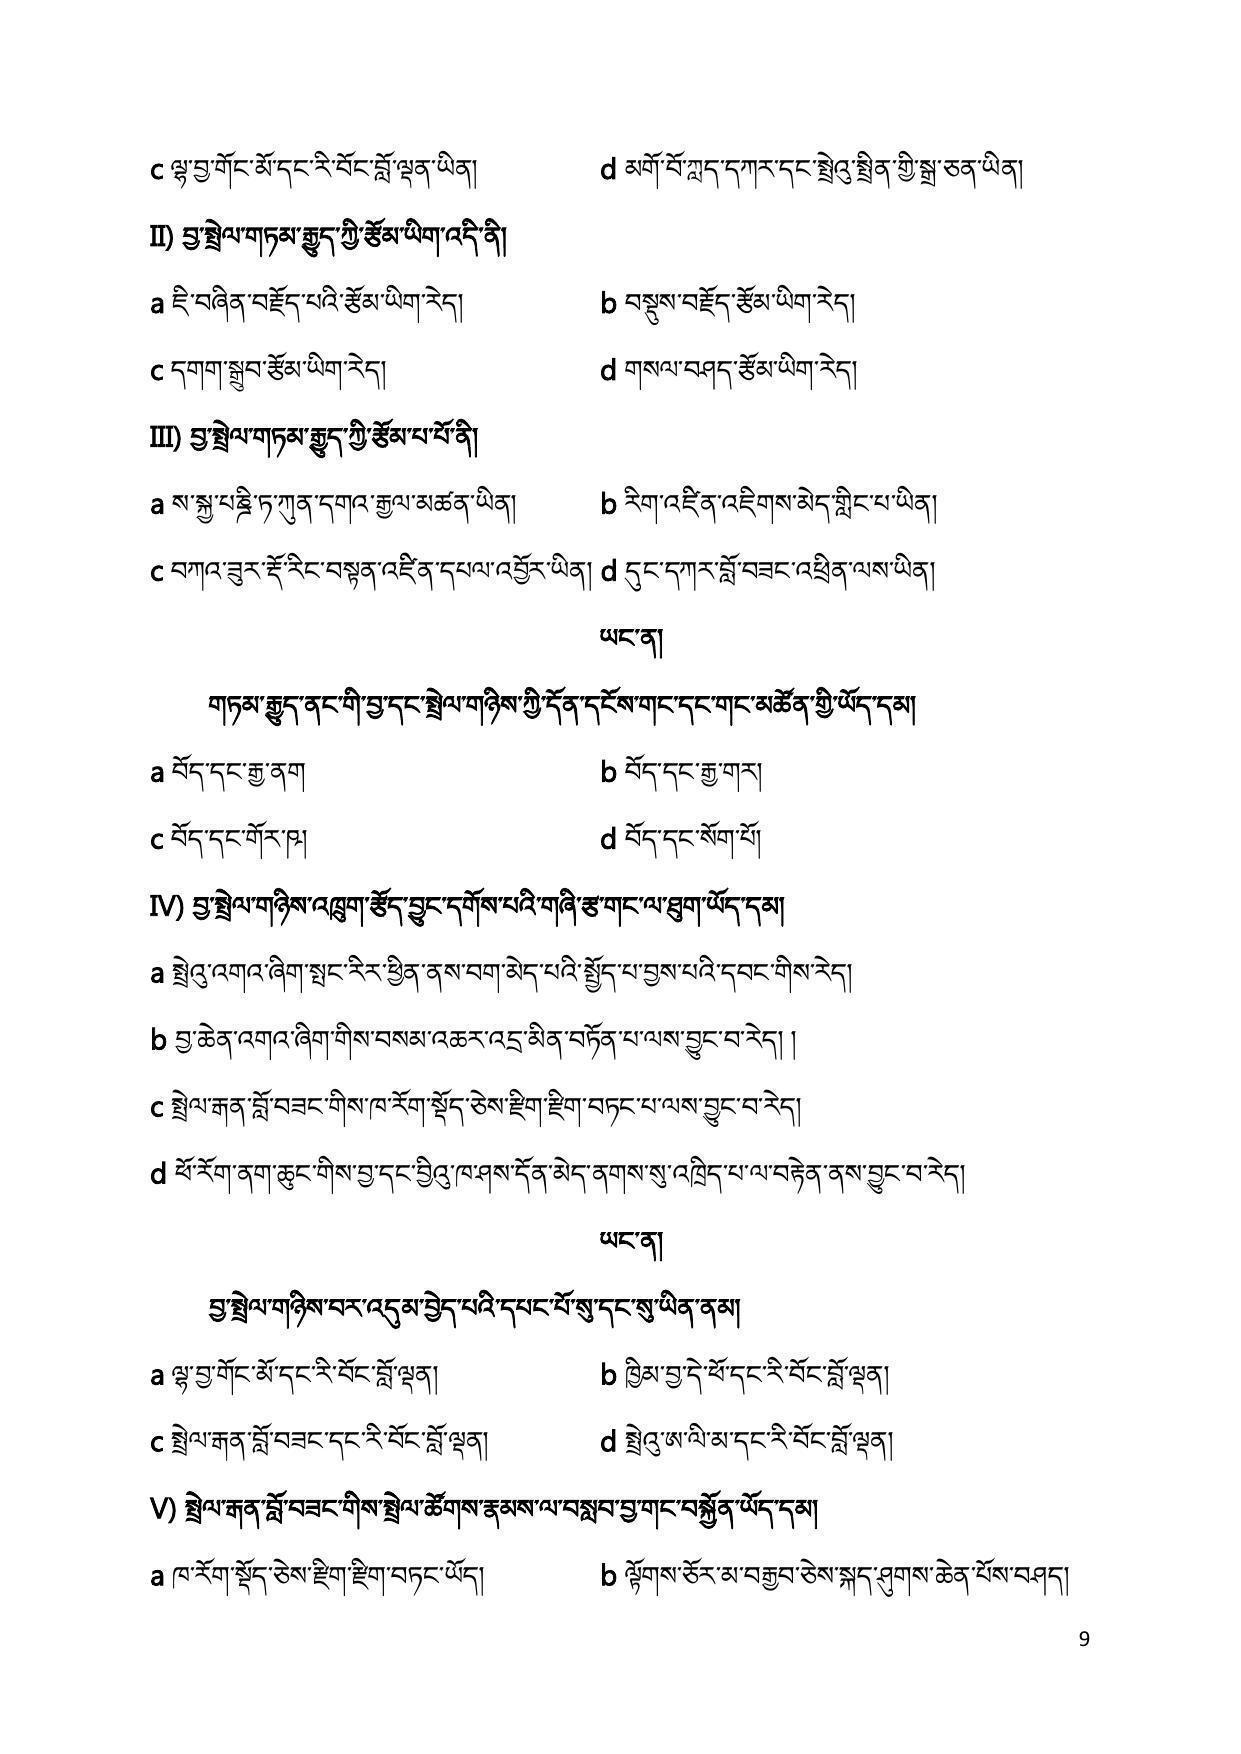 c ལྷ་བྱ་གོང་མོ་དང་རི་བོང་བློ་ལྡན་ཡིན། d མགོ་བོ་ཀླད་དཀར་དང་སྤྲེའུ་སྤྲིན་གྱི་སྒྲ་ཅན་ཡིན།
II) བྱ་སྤྲེལ་གཏམ་རྒྱུད་ཀྱི་རྩོམ་ཡིག་འདི་ནི།
a ཇི་བཞིན་བརྗོད་པའི་རྩོམ་ཡིག་རེད། b བསྡུས་བརྗོད་རྩོམ་ཡིག་རེད།
c དགག་སྒྲུབ་རྩོམ་ཡིག་རེད། d གསལ་བཤད་རྩོམ་ཡིག་རེད།
III) བྱ་སྤྲེལ་གཏམ་རྒྱུད་ཀྱི་རྩོམ་པ་པོ་ནི།
a ས་སྐྱ་པཎྜི་ཏ་ཀུན་དགའ་རྒྱལ་མཚན་ཡིན། b རིག་འཛིན་འཇིགས་མེད་གླིང་པ་ཡིན།
c བཀའ་ཟུར་རྡོ་རིང་བསྟན་འཛིན་དཔལ་འབྱོར་ཡིན། d དུང་དཀར་བློ་བཟང་འཕྲིན་ལས་ཡིན།
ཡང་ན།
གཏམ་རྒྱུད་ནང་གི་བྱ་དང་སྤྲེལ་གཉིས་ཀྱི་དོན་དངོས་གང་དང་གང་མཚོན་གྱི་ཡོད་དམ།
a བོད་དང་རྒྱ་ནག b བོད་དང་རྒྱ་གར།
c བོད་དང་གོར་ཁ། d བོད་དང་སོག་པོ།
IV) བྱ་སྤྲེལ་གཉིས་འཁྲུག་རྩོད་བྱུང་དགོས་པའི་གཞི་རྩ་གང་ལ་ཐུག་ཡོད་དམ།
a སྤྲེའུ་འགའ་ཞིག་སྤང་རིར་ཕྱིན་ནས་བག་མེད་པའི་སྤྱོད་པ་བྱས་པའི་དབང་གིས་རེད།
b བྱ་ཆེན་འགའ་ཞིག་གིས་བསམ་འཆར་འདྲ་མིན་བཏོན་པ་ལས་བྱུང་བ་རེད། །
c སྤྲེལ་རྒན་བློ་བཟང་གིས་ཁ་རོག་སྡོད་ཅེས་རྫིག་རྫིག་བཏང་པ་ལས་བྱུང་བ་རེད།
d ཕོ་རོག་ནག་ཆུང་གིས་བྱ་དང་བྱིའུ་ཁ་ཤས་དོན་མེད་ནགས་སུ་འཁྲིད་པ་ལ་བརྟེན་ནས་བྱུང་བ་རེད།
ཡང་ན།
བྱ་སྤྲེལ་གཉིས་བར་འདུམ་བྱེད་པའི་དཔང་པོ་སུ་དང་སུ་ཡིན་ནམ།
a ལྷ་བྱ་གོང་མོ་དང་རི་བོང་བློ་ལྡན། b ཁྱིམ་བྱ་དེ་ཕོ་དང་རི་བོང་བློ་ལྡན།
c སྤྲེལ་རྒན་བློ་བཟང་དང་རི་བོང་བློ་ལྡན། d སྤྲེའུ་ཨ་ལི་མ་དང་རི་བོང་བློ་ལྡན།
V) སྤྲེལ་རྒན་བློ་བཟང་གིས་སྤྲེལ་ཚོགས་རྣམས་ལ་བསླབ་བྱ་གང་བསྐྱོན་ཡོད་དམ།
a ཁ་རོག་སྡོད་ཅེས་རྫིག་རྫིག་བཏང་ཡོད། b ལྟོགས་ཅོར་མ་བརྒྱབ་ཅེས་སྐད་ཤུགས་ཆེན་པོས་བཤད།
9